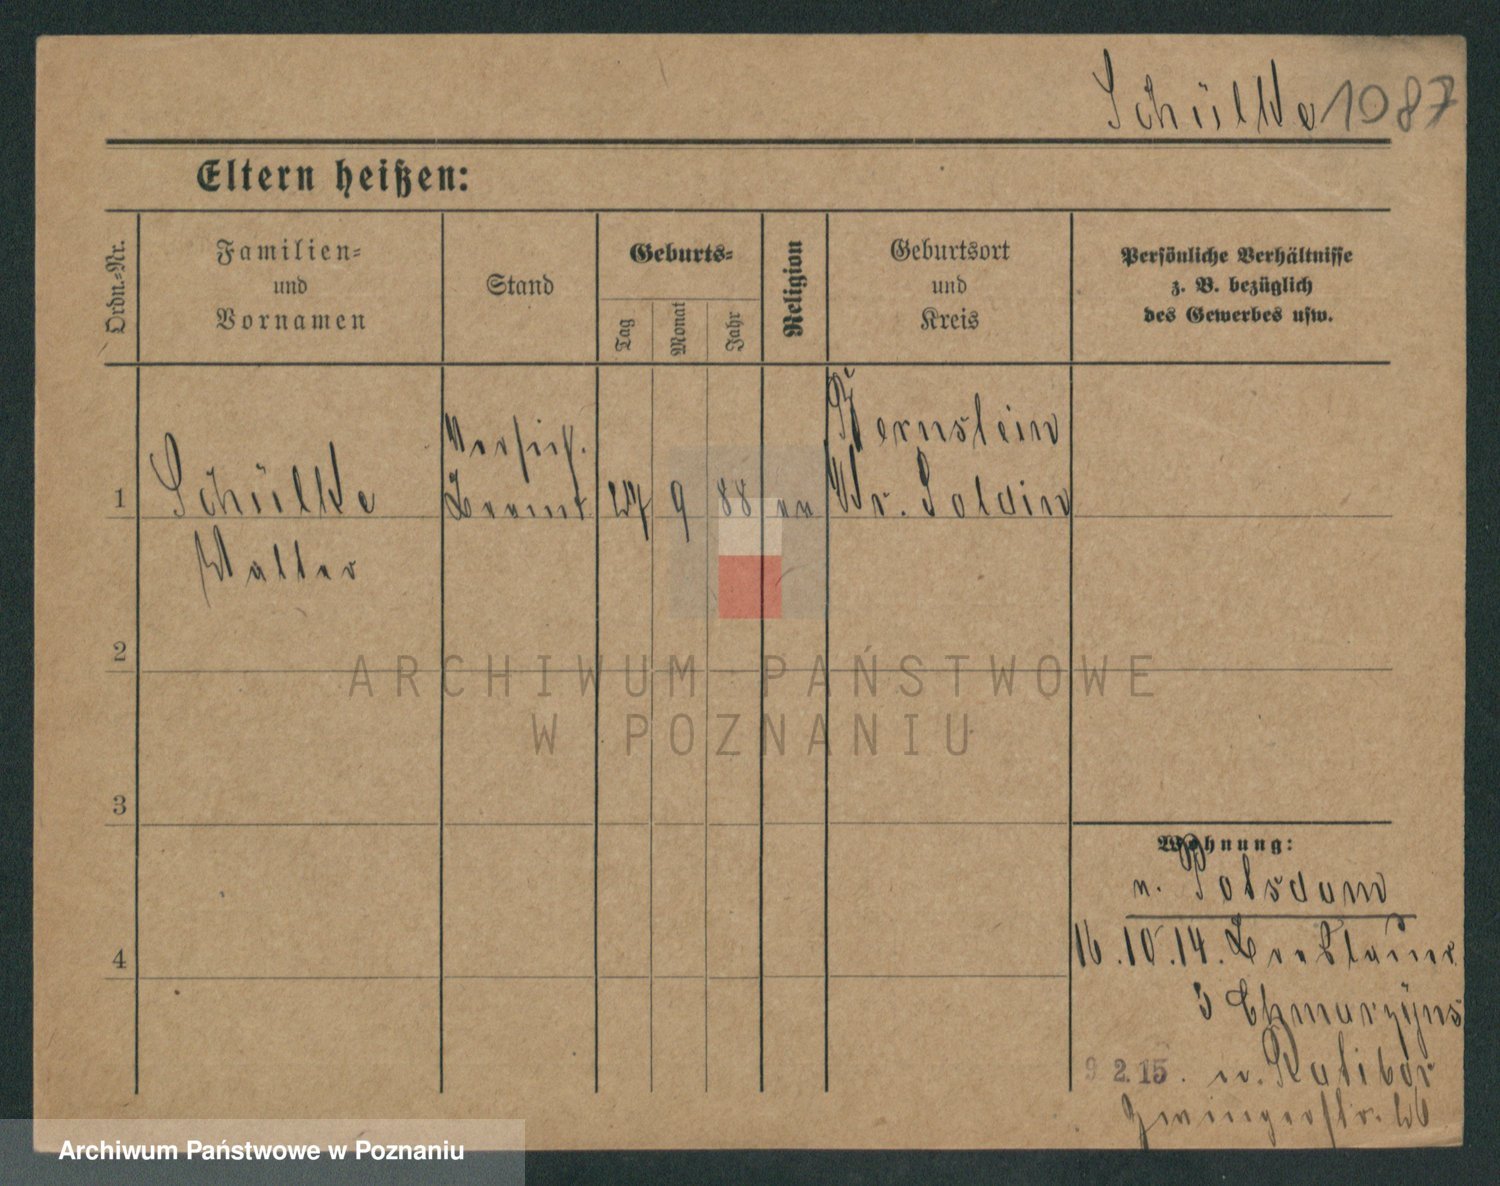 Schülke 1087
Eltern heißen:
Ordn.-Nr.
Familien-
und
Vornamen
Stand
Geburts-
Tag
Monat
Jahr
Religion
Geburtsort
und
Kreis
Persönliche Verhältnisse
z. B. bezüglich
des Gewerbes usw.
1
Schülke
Walter
Versich.
Beamt
27
9
88
ev
Bernstein
Kr. Soldin
2
3
4
Wohnung:
v. Potsdam
16.10.14. Breslauer
9 2.15. n. Ratibor
Zwingerstr. 26
ARCHIWUM PAŃSTWOWE
W POZNANIU
Archiwum Państwowe w Poznaniu